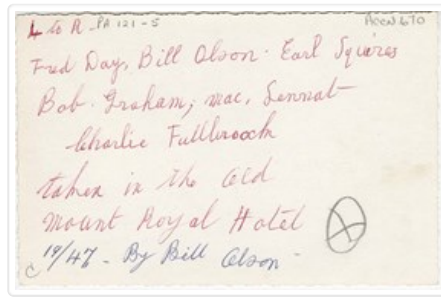 L to R - PA 121-5 ACCN 670
Fred Day, Bill Olson. Earl Squires
Bob. Graham, Mac. Sennat
Charlie Fullbroock
taken in the old
Mount Royal Hotel
c 19/47 - By Bill Olson